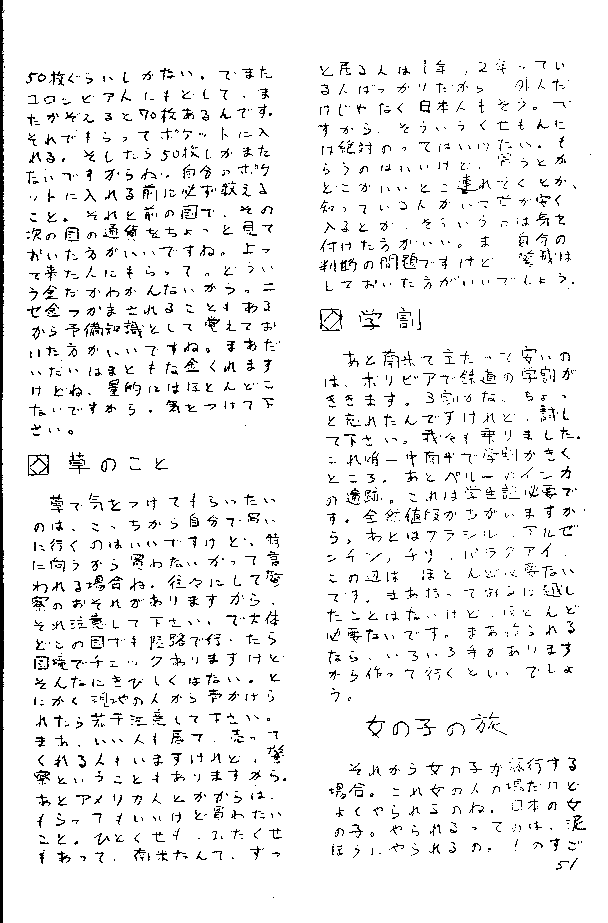 50枚ぐらいしかない。でまた
コロンビア人にもどして、ま
たかぞえると70枚あるんです。
それでもらってポケットに入
れる。そしたら50枚しかまた
ないですからね。自分のポケ
ットに入れる前に必ず数える
こと。それと前の国で、その
次の国の通貨をちょっと見て
おいた方がいいですね。よっ
て来た人にもらって。どうい
う金だかわかんないから。ニ
セ金つかまされることもある
から予備知識として覚えてお
いた方がいいですね。まあだ
いだいはまともな金くれます
けどね、量的にはほとんどこ
ないですから。気をつけて下
さい。
草のこと
草で気をつけてもらいたい
のは、こっちから自分で買い
に行くのはいいですけど、特
に向うから買わないかって言
われる場合ね。往々にして警
察のおそれがありますから、
それ注意して下さい。で大体
どこの国でも陸路で行ったら
国境でチェックありますけど
そんなにきびしくはない。と
にかく現地の人から声かけら
れたら若干注意して下さい。
まあ、いい人も居て、売って
くれる人もいますけれど、警
察ということもありますから。
あとアメリカ人とかからは、
もらってもいいけど買わない
こと。ひとくせも、ふたくせ
もあって、南米なんて、ずっ
と居る人は1年、2年ってい
る人ばっかりだから、外人だ
けじゃなく日本人もそう。で
すから、そういうくせもんに
は絶対のってはいけない。も
らうのはいいけど、買うとか
どこかいいとこ連れてくとか、
知っている人がいて 安く
入るとか、そういうのは気を
付けた方がいい。ま、自分の
判断の問題ですけど、警戒は
しておいた方がいいでしょう。
学割
あと南米で立たって安いの
は、ボリビアで鉄道の学割が
ききます。3割かな、ちょっ
と忘れたんですけれど、試し
て下さい。我々も乗りました。
これ唯一中南米で学割がきく
ところ。あとペルーのインカ
の遺跡。これは学生証必要で
す。全然値段がちがいますか
ら。あとはブラジル、アルゼ
ンチン、チリ、パラグアイ、
この辺は、ほとんど必要ない
です。まあ持っておるに越し
たことはないけど、ほとんど
必要ないです。まあ られる
なら、いろいろ手があります
から作って行くといいでしょ
う。
女の子の旅
それから女の子が旅行する
場合。これ女の人の場合だけど
よくやられるのね。日本の女
の子。やられるってのは、泥
ほうにやられるの。 のすご
51